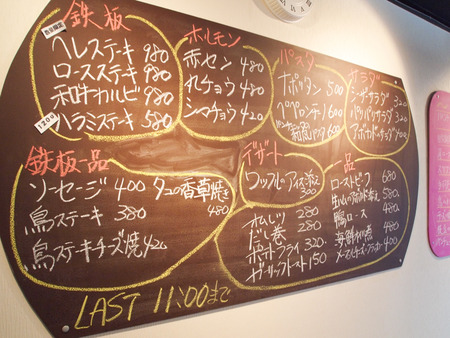 鉄板
ヘレステーキ 980
ロースステーキ 980
和牛カルビ 980
120g
ハラミステーキ 580
ホルモン
赤セン 480
丸チョウ 480
シマチョウ 420
パスタ
ナポリタン 500
ペペロンチーノ 600
和風パスタ 600
サラダ
シーザーサラダ 320
パリパリサラダ 320
アボカドサラダ 400
鉄板一品
ソーセージ 400
タコの香草焼き 480
鳥ステーキ 380
鳥ステーキチーズ焼 420
デザート
ワッフルのアイス添え 280
オムレツ 280
だし巻 280
ポテトフライ 320
ガーリックトースト 150
一品
ローストビーフ 680
580
鴨ロース 480
480
400
LAST 11:00まで